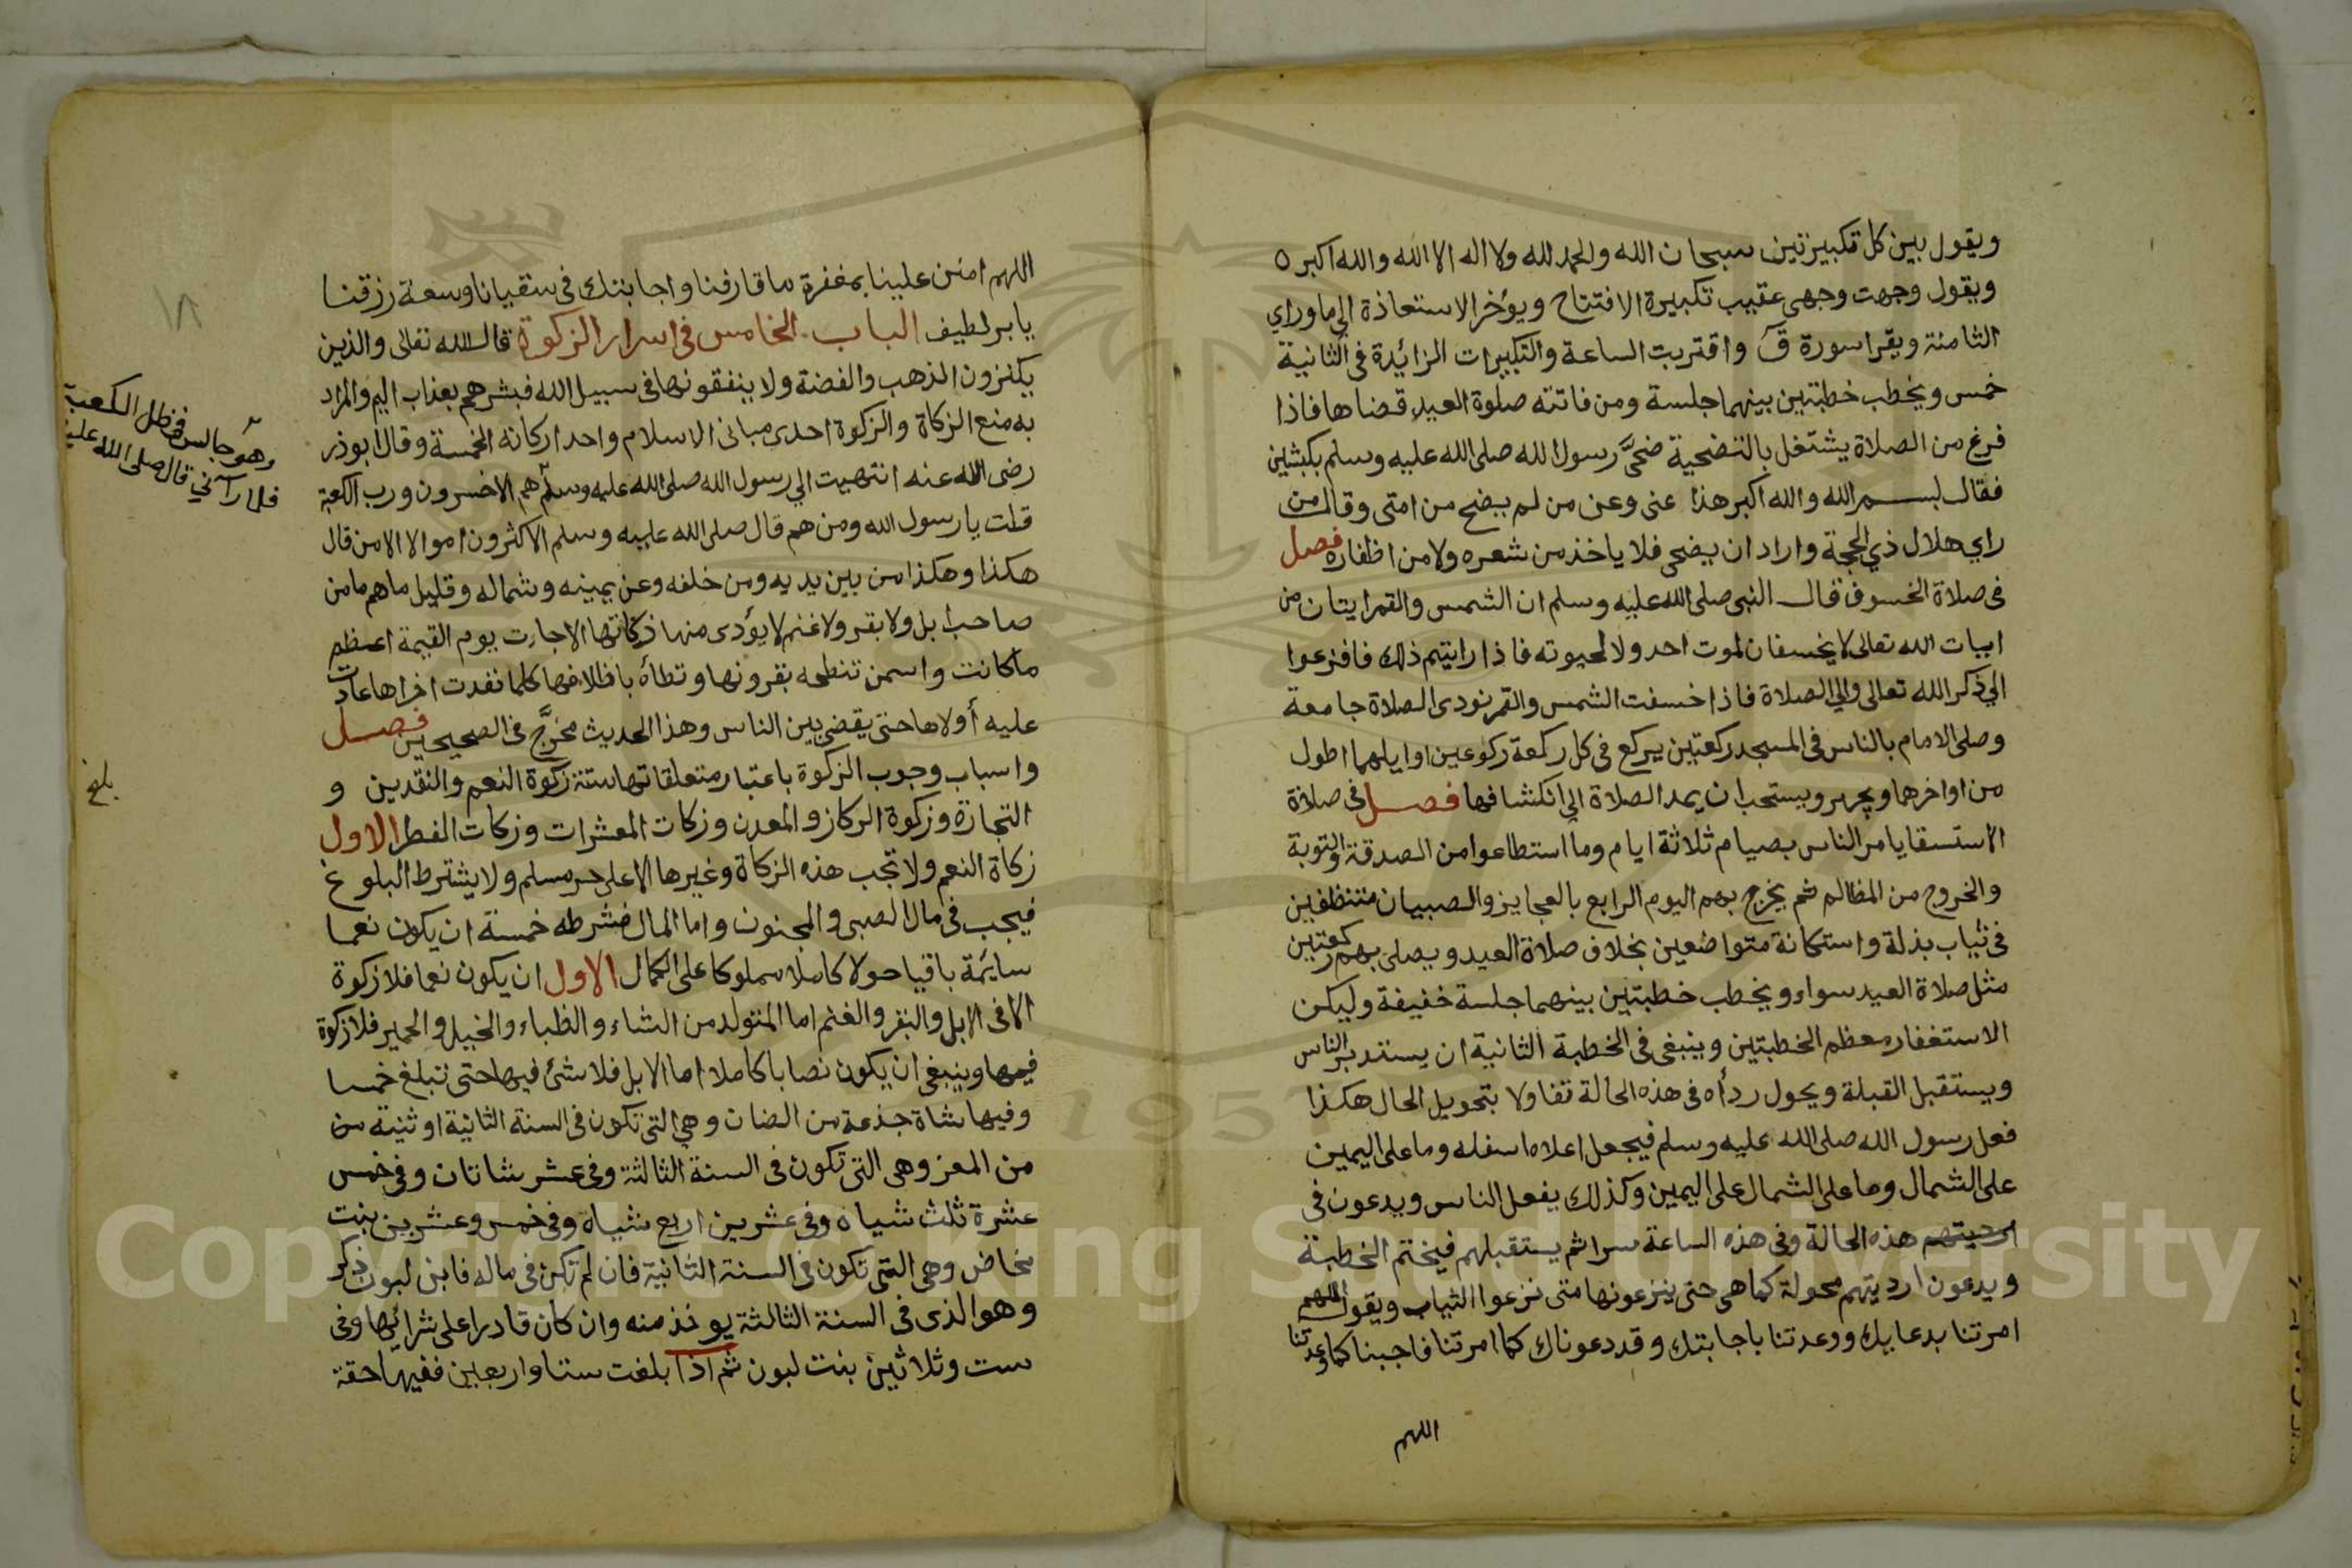 ويقول بين كل تكبيرتين سبحان الله والحمد لله ولا اله الا الله والله اكبر ٥
ويقول وجهت وجهى عقيب تكبيرة الافتتاح ويؤخر الاستعاذة الي ما وراي
الثامنة ويقرا سورة ق واقتربت الساعة والتكبيرات الزائدة فى الثانية
خمس ويخطب خطبتين بينهما جلسة ومن فاتته صلوة العيد قضاها فاذا
فرغ من الصلاة يشتغل بالتضحية ضحَّى رسول الله صلى الله عليه وسلم بكبشين
فقال بسم الله والله اكبر هذا عنى وعن من لم يضح من امتى وقال من
راي هلال ذي الحجة واراد ان يضحى فلا ياخذ من شعره ولا من اظفاره فصل
فى صلاة الخسوف قال النبى صلى الله عليه وسلم ان الشمس والقمر ايتان من
ايات الله تعالى لا يخسفان لموت احد ولا لحيوته فاذا رايتم ذلك فافزعوا
الي ذكر الله تعالى والي الصلاة فاذا خسفت الشمس والقمر نودى الصلاة جامعة
وصلى الامام بالناس فى المسجد ركعتين يركع فى كل ركعة ركوعين اوايلهما اطول
من اواخرهما ويجهر ويستحب ان يمد الصلاة الي انكشافها فصل فى صلاة
الاستسقا يامر الناس بصيام ثلاثة ايام وما استطاعوا من الصدقة والتوبة
والخروج من المظالم ثم يخرج بهم اليوم الرابع بالعجايز والصبيان متنظفين
فى ثياب بذلة واستكانة متواضعين بخلاف صلاة العيد ويصلى بهم ركعتين
مثل صلاة العيد سواء ويخطب خطبتين بينهما جلسة خفيفة وليكن
الاستغفار معظم الخطبتين وينبغى فى الخطبة الثانية ان يستدبر الناس
ويستقبل القبلة ويحول رداه فى هذه الحالة تفاولا بتحويل الحال هكذا
فعل رسول الله صلى الله عليه وسلم فيجعل اعلاه اسفله وما على اليمين
على الشمال وما على الشمال على اليمين وكذلك يفعل الناس ويدعون فى
هذه الحالة وفى هذه الساعة سرا ثم يستقبلهم فيختم الخطبة
ويدعون ارديتهم محولة كما هى حتى ينزعونها متى نزعوا الثياب ويقول اللهم
امرتنا بدعايك ووعدتنا باجابتك وقد دعوناك كما امرتنا فاجبنا كما وعدتنا
اللهم
اللهم امنن علينا بمغفرة ما قارفنا واجابتك فى سقيانا وسعة رزقنا
يا بر لطيف الباب الخامس فى اسرار الزكوة قال الله تعالى والذين
يكنزون الذهب والفضة ولا ينفقونها فى سبيل الله فبشرهم بعذاب اليم والمراد
به منع الزكاة والزكوة احدى مبانى الاسلام واحد اركانه الخمسة وقال ابوذر
رضى الله عنه انتهيت الي رسول الله صلى الله عليه وسلم هم الاخسرون ورب الكعبة
قلت يا رسول الله ومن هم قال صلى الله عليه وسلم الاكثرون اموالا الا من قال
هكذا وهكذا من بين يديه ومن خلفه وعن يمينه وشماله وقليل ما هم ما من
صاحب ابل ولا بقر ولا غنم لا يؤدى منها زكاتها الا جاءت يوم القيمة اعظم
ما كانت واسمن تنطحه بقرونها وتطأه باظلافها كلما نفدت اخراها عادت
عليه أولاها حتى يقضى بين الناس وهذا الحديث مخرَّج فى الصحيحين فصل
واسباب وجوب الزكوة باعتبار متعلقاتها ستة زكوة النعم والنقدين و
التجارة وزكوة الركاز والمعدن وزكات المعشرات وزكات الفطر الاول
زكاة النعم ولا تجب هذه الزكاة وغيرها الا على حر مسلم ولا يشترط البلوغ
فيجب فى مال الصبى والمجنون واما المال فشرطه خمسة ان يكون نعما
سائمة باقيا حولا كاملا مملوكا على الكمال الاول ان يكون نعما فلا زكوة
الا فى الابل والبقر والغنم اما المتولد من الشاء والظباء والخيل والحمير فلا زكوة
فيها وينبغى ان يكون نصابا كاملا اما الابل فلا شئ فيها حتى تبلغ خمسا
وفيها شاة جذعة من الضان وهي التى تكون فى السنة الثانية او ثنية من
من المعز وهى التى تكون فى السنة الثالثة وفى عشر شاتان وفى خمس
عشرة ثلث شياه وفى عشرين اربع شياه وفى خمس وعشرين بنت
مخاض وهى التى تكون فى السنة الثانية فان لم تكن فى ماله فابن لبون ذكر
وهو الذى فى السنة الثالثة يوخذ منه وان كان قادرا على شرائها وفى
ست وثلاثين بنت لبون ثم اذا بلغت ستا واربعين ففيها حقة
١٨
وهو جالس فى ظل الكعبة
فلما رآنى قال صلى الله عليه
بلغ
Copyright © King Saud University
1957